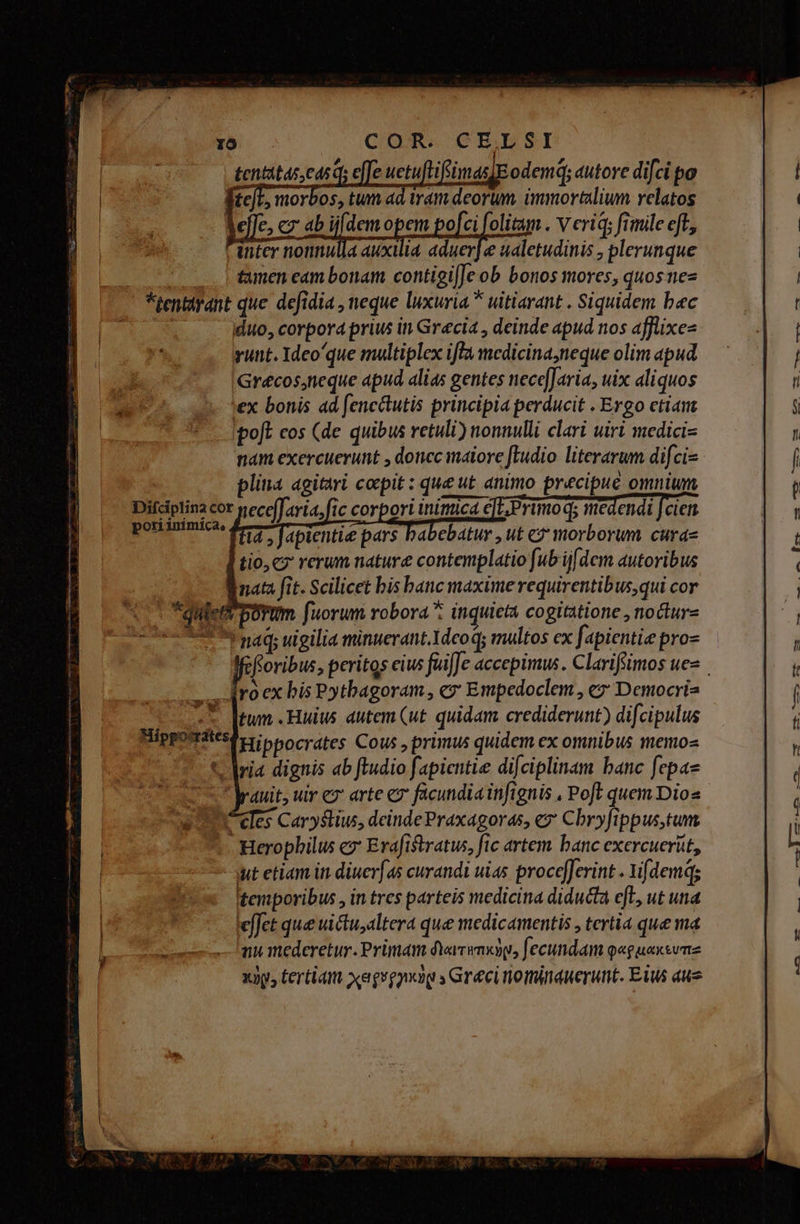 10 COR. CELSI
tentatas,easq; eſſe uetuſtiſsimas. Eodemq; autore diſci po
teſt, morbos, tum ad iram deorum immortalium relatos
eſſe, & ab ijſdem opem poſci ſolitam. Veriq; ſimile eſt,
inter nonnulla auxilia aduerſæ ualetudinis, plerunque
tamen eam bonam contigiſſe ob bonos mores, quos ne=
*tentarant que deſidia, neque luxuria * uitiarant. Siquidem hæc
duo, corpora prius in Græcia, deinde apud nos afflixe=
runt. Ideo'que multiplex iſta medicina,neque olim apud
Græcos,neque apud alias gentes neceſſaria, uix aliquos
ex bonis ad ſenectutis principia perducit. Ergo etiam
poſt eos (de quibus retuli) nonnulli clari uiri medici=
nam exercuerunt, donec maiore ſtudio literarum diſci=
plina agitari cœpit: quæ ut animo præcipue omnium
Diſciplina cor neceſſaria,ſic corpori inimica eſt. Primoq; medendi ſcien
pori inimica. tia, ſapientiæ pars habebatur, ut & morborum cura=
tio, & rerum naturæ contemplatio ſub ijſdem autoribus
nata ſit. Scilicet his hanc maxime requirentibus,qui cor
*quieta porum ſuorum robora * inquieta cogitatione, noctur=
naq; uigilia minuerant. Ideoq; multos ex ſapientiæ pro=
feſſoribus, peritos eius fuiſſe accepimus. Clariſsimos ue=
rò ex his Pythagoram, & Empedoclem, & Democri=
tum. Huius autem (ut quidam crediderunt) diſcipulus
Hippocrates Hippocrates Cous, primus quidem ex omnibus memo=
ria dignis ab ſtudio ſapientiæ diſciplinam hanc ſepa=
rauit, uir & arte & facundia inſignis. Poſt quem Dio=
cles Caryſtius, deinde Praxagoras, & Chryſippus,tum
Herophilus & Eraſiſtratus, ſic artem hanc exercuerūt,
ut etiam in diuerſas curandi uias proceſſerint. Iiſdemq;
temporibus, in tres parteis medicina diducta eſt, ut una
eſſet quæ uictu,altera quæ medicamentis, tertia quæ ma
nu mederetur. Primam διαιτητικὴν, ſecundam φαρμακευτι=
κὴν, tertiam χειρουργικὴν, Græci nominauerunt. Eius au=